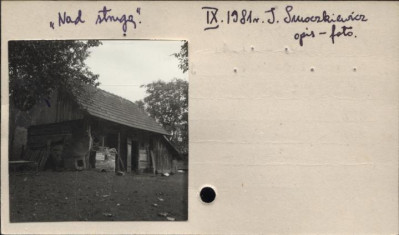 „Nad strugą".
IX. 1981r. J. Smoczkiewicz
opis - foto.